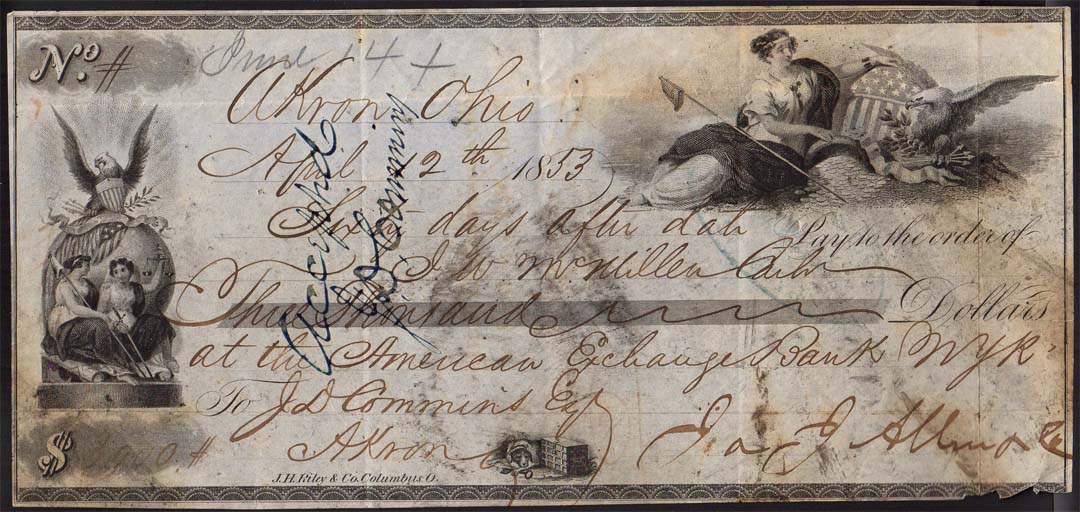 No. #
June 14 +
Akron Ohio
April 12th 1853
Sixty days after date Pay to the order of
J W McMillen Cashr
Three Thousand Dollars
at the American Exchange Bank NYk
To J D Commins Esq
Akron
$ #
J.H. Riley & Co. Columbus O.
Accepted
J D Commins